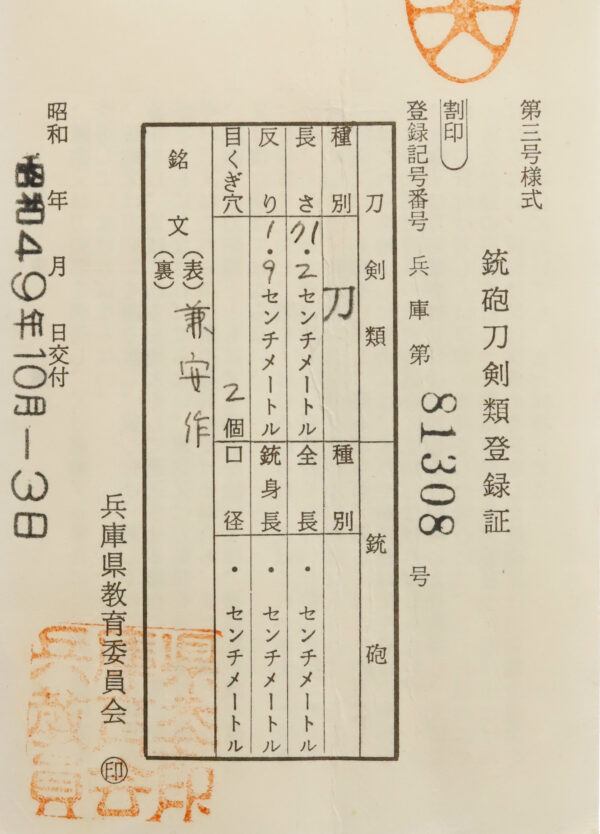 第三号様式
銃砲刀剣類登録証
割印
登録記号番号 兵庫第 81308 号
刀剣類 銃砲
種別 刀 種別
長さ 71・2センチメートル 全長 ・ センチメートル
反り 1・9センチメートル 銃身長 ・ センチメートル
目くぎ穴 2個 口径 ・ センチメートル
銘文 (表) 兼安作
(裏)
兵庫県教育委員会 ㊞
昭和 年 月 日交付
昭和49年10月-3日